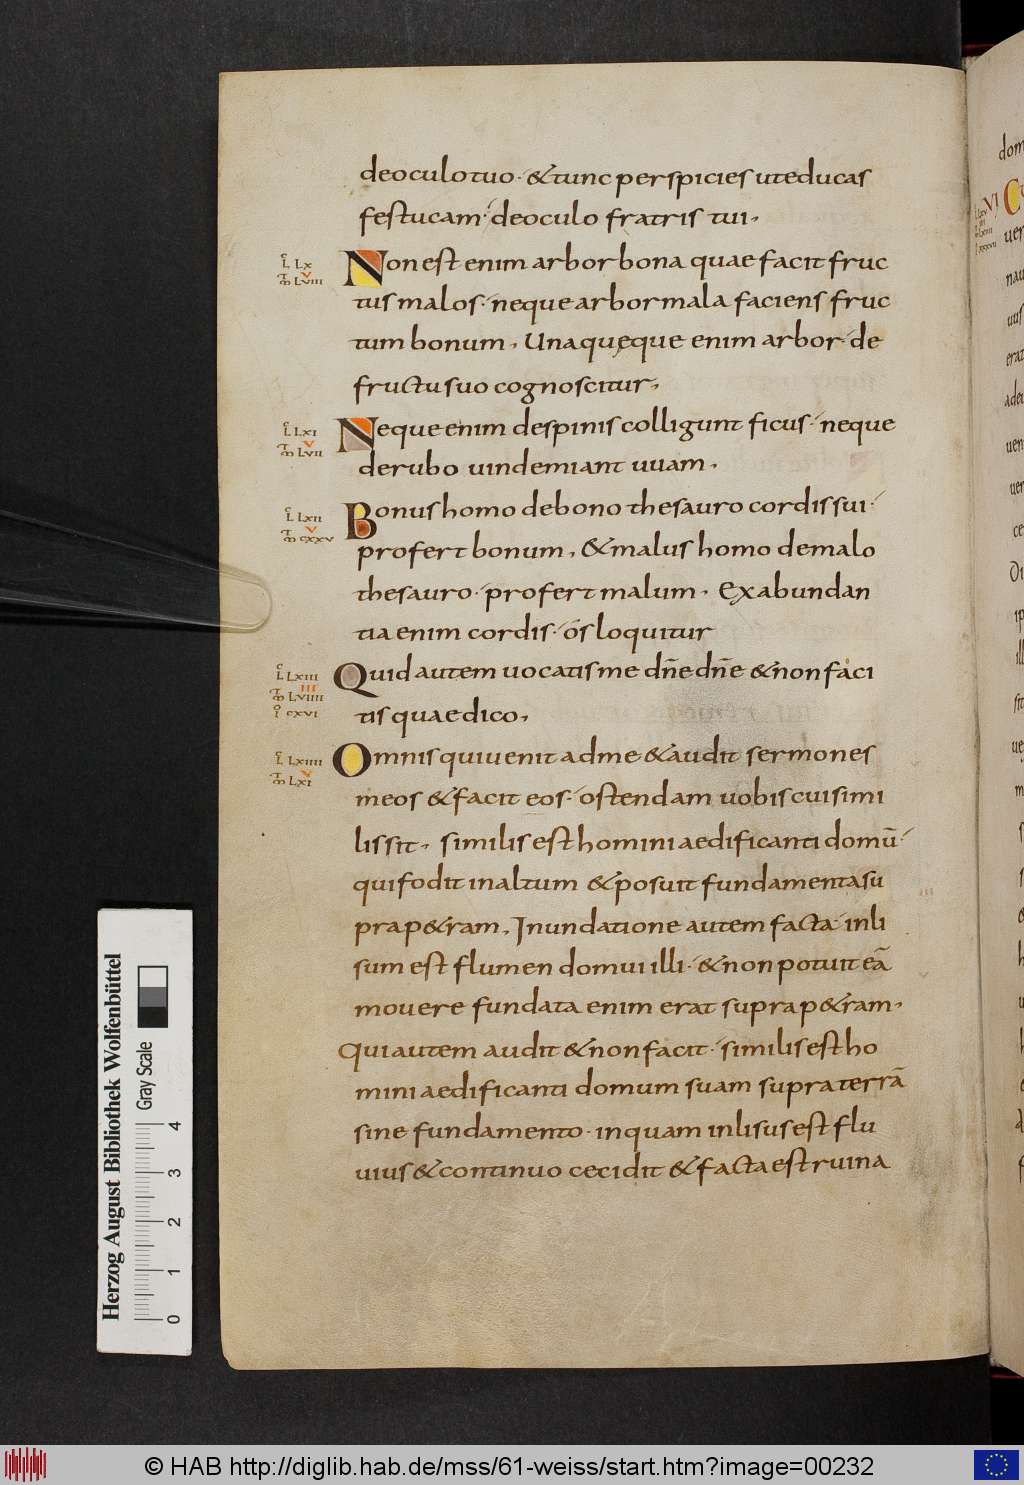 de oculo tuo · & tunc perspicies ut educas
festucam · de oculo fratris tui ·
L LX
V
M LVIII
Non est enim arbor bona quae facit fruc
tus malos · neque arbor mala faciens fruc
tum bonum · Unaquęque enim arbor de
fructu suo cognoscitur ·
L LXI
V
M LVII
Neque enim de spinis colligunt ficus · neque
de rubo uindemiant uuam ·
L LXII
V
M CXXV
Bonus homo de bono thesauro cordis sui ·
profert bonum · & malus homo de malo
thesauro · profert malum · Ex abundan
tia enim cordis · os loquitur
L LXIII
III
M LVIIII
I CXVI
Quid autem uocatis me dn̄e dn̄e & non faci
tis quae dico ·
L LXIIII
V
M LXI
Omnis qui uenit ad me & audit sermones
meos & facit eos · ostendam uobis cui simi
lis sit · similis est homini aedificanti domū ·
qui fodit in altum & posuit fundamenta su
pra p&ram · Inundatione autem facta · inli
sum est flumen domui illi · & non potuit eā
mouere fundata enim erat supra p&ram ·
Qui autem audit & non facit · similis est ho
mini aedificanti domum suam supra terrā
sine fundamento · in quam inlisus est flu
uius & continuo cecidit & facta est ruina
Herzog August Bibliothek Wolfenbüttel
Gray Scale
0 1 2 3 4
© HAB http://diglib.hab.de/mss/61-weiss/start.htm?image=00232